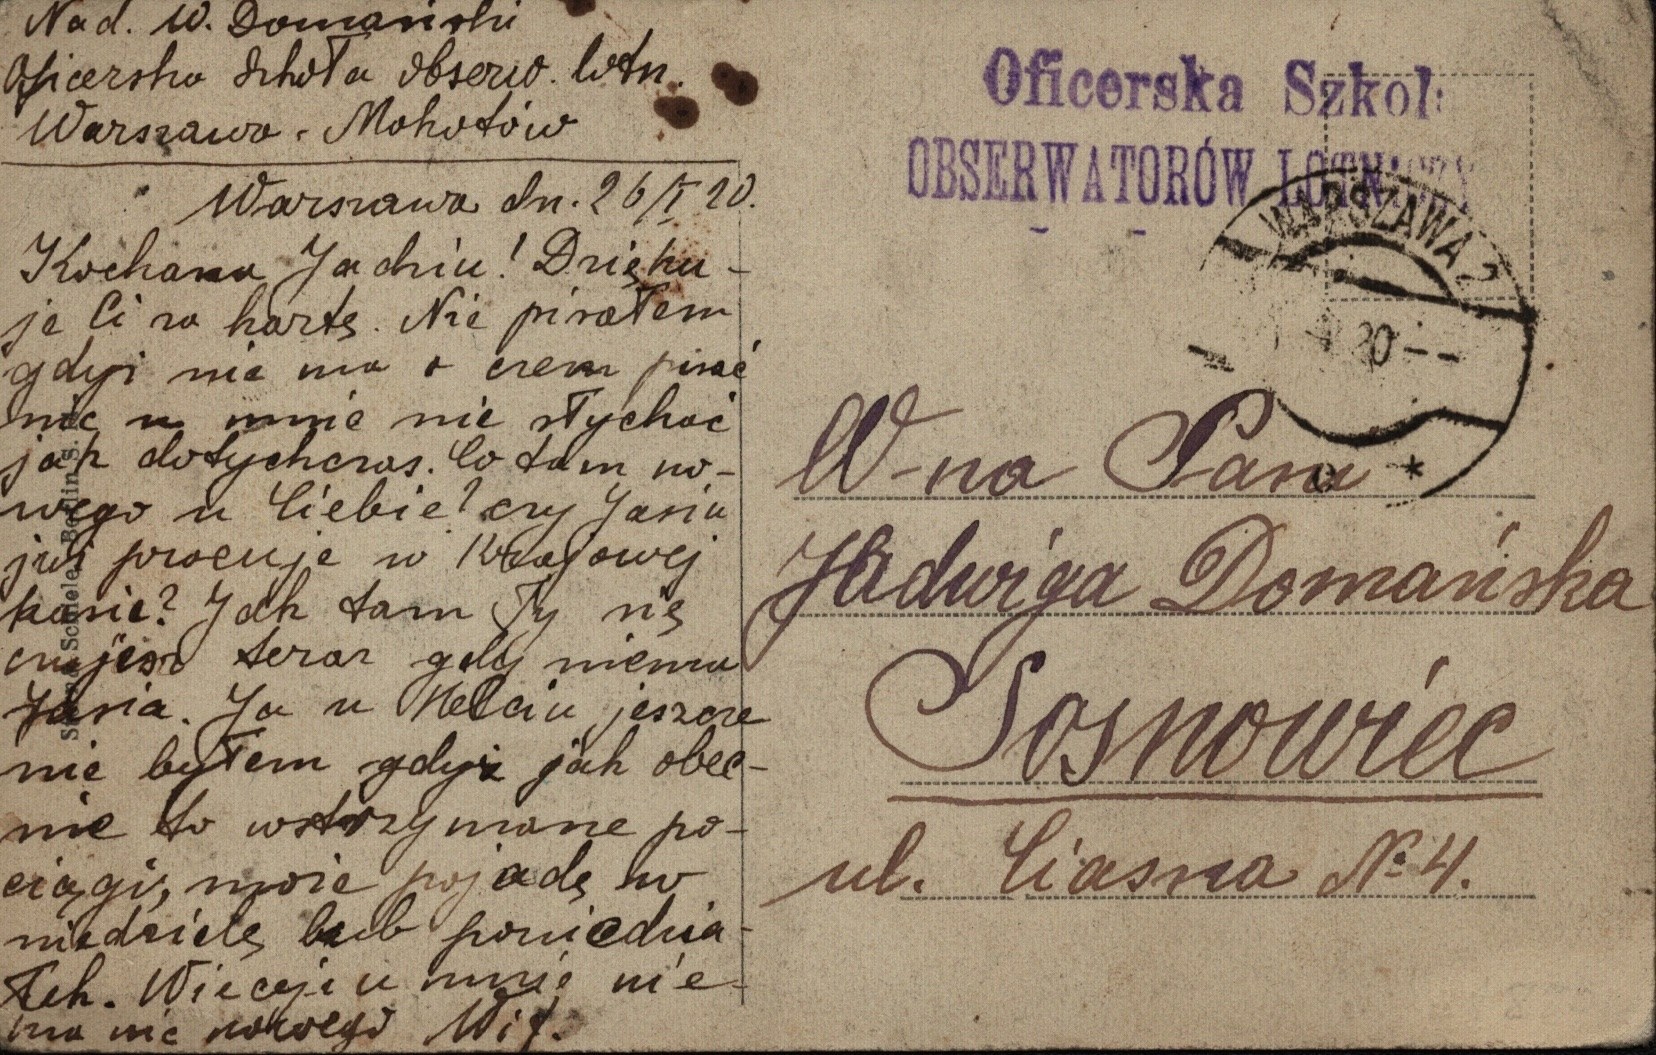 Nad. W. Domański
Oficerska Szkoła Obserw. lotn.
Warszawa - Mokotów
Warszawa dn. 26/I 20.
Kochana Jadziu! Dzięku-
je Ci za kartę. Nie pisałem
gdyż nie ma o czem pisać
nic u mnie nie słychać
jak dotychczas. Co tam no-
wego u Ciebie? czy Jasiu
już pracuje w Krajowej
kasie? Jak tam Ty się
czujesz teraz gdy niema
Jasia. Ja u Helciu jeszcze
nie byłem gdyż jak obec-
nie to wstrzymane po-
ciągi, może pojadę w
niedzielę lub poniedzia-
łek. Więcej u mnie nie-
ma nic nowego
Oficerska Szkoł
OBSERWATORÓW LOTNICZY
WARSZAWA 2
20
W-na Pani
Jadwiga Domańska
Sosnowiec
ul. Ciasna № 4.
Berlin S.